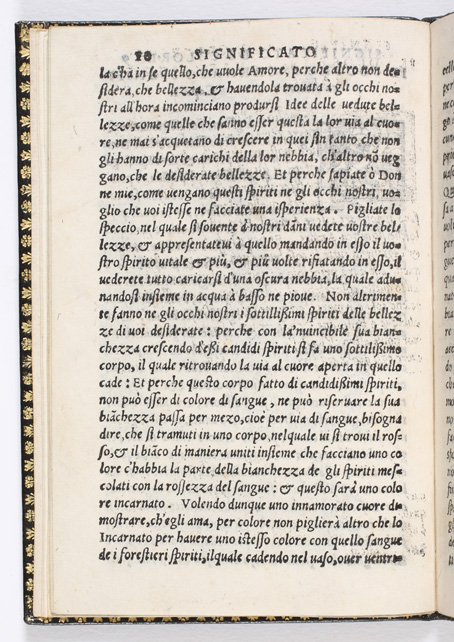 20 SIGNIFICATO
la c'ha in se quello, che vuole Amore, perche altro non de=
sidera, che bellezza, & havendola trovata à gli occhi no=
stri all'hora incominciano prodursi Idee delle vedute bel=
lezze, come quelle che sanno esser questa la lor via al cuo=
re, ne mai s'acquetano di crescere in quei sin tanto che non
gli hanno di sorte carichi della lor nebbia, ch'altro nō veg
gano, che le desiderate bellezze. Et perche sapiate ò Don
ne mie, come vengano questi spiriti ne gli occhi nostri, vo=
glio che voi istesse ne facciate una isperienza. Pigliate lo
speccio, nel quale si sovente à nostri dāni vedete vostre bel=
lezze, & appresentatevi à quello mandando in esso il vo=
stro spirito vitale & più, & più volte rifiatando in esso, il
vederete tutto caricarsi d'una oscura nebbia, la quale adu=
nandosi insieme in acqua à basso ne piove. Non altrimen=
te fanno ne gli occhi nostri i sottilißimi spiriti delle bellez
ze di voi desiderate: perche con la'nvincibile sua bian=
chezza crescendo d'eßi candidi spiriti si fa uno sottilißimo
corpo, il quale ritrovando la via al cuore aperta in quello
cade: Et perche questo corpo fatto di candidißimi spiriti,
non può esser di colore di sangue, ne può riservare la sua
biāchezza passa per mezo, cioè per via di sangue, bisogna
dire, che si tramuti in uno corpo, nel quale vi si trovi il ros=
so, & il biāco di maniera uniti insieme che facciano uno co
lore c'habbia la parte della bianchezza de gli spiriti mes=
colati con la rossezza del sangue: & questo sarà uno colo
re incarnato. Volendo dunque uno innamorato cuore di=
mostrare, ch'egli ama, per colore non piglierà altro che lo
Incarnato per havere uno istesso colore con quello sangue
de i forestieri spiriti, ilquale cadendo nel vaso, over ventri=